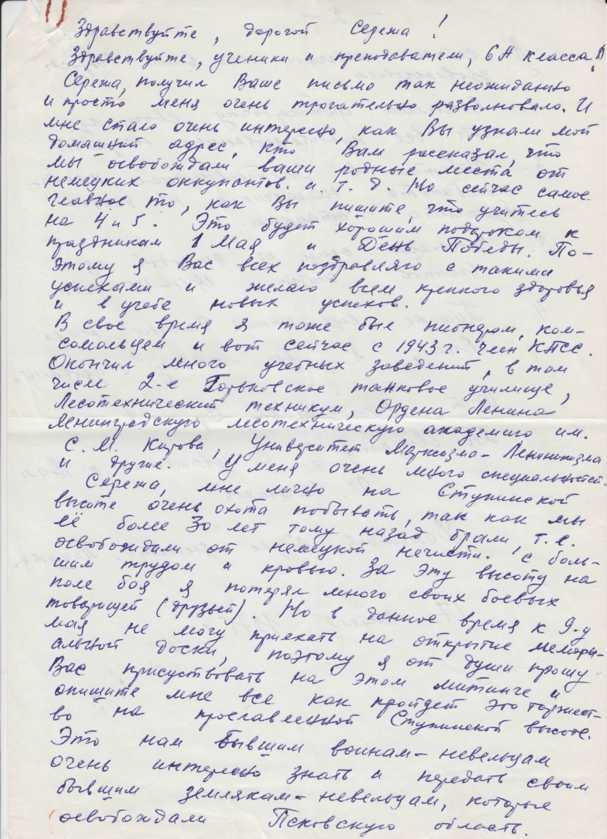 Здравствуйте, дорогой Сережа!
Здравствуйте, ученики и преподаватели, 6 А класса!
Сережа, получил Ваше письмо так неожиданно
и просто меня очень трогательно разволновало. И
мне стало очень интересно, как Вы узнали мой
домашний адрес, кто Вам рассказал, что
мы освобождали ваши родные места от
немецких оккупантов. и т. д. Но сейчас самое
главное то, как Вы пишите, что учитесь
на 4 и 5. Это будет хорошим подарком к
праздникам 1 Мая и День Победы. По-
этому я Вас всех поздравляю с такими
успехами и желаю всем крепкого здоровья
и в учебе новых успехов.
В свое время я тоже был пионером, ком-
сомольцем и вот сейчас с 1943 г. член КПСС.
Окончил много учебных заведений, в том
числе 2-е Горьковское танковое училище,
Лесотехнический техникум, Ордена Ленина
Ленинградскую лесотехническую академию им.
С. М. Кирова, Университет Марксизма-Ленинизма
и другие. У меня очень много специальностей.
Сережа, мне лично на Ступинской
высоте очень охота побывать, так как мы
её более 30 лет тому назад брали, т. е.
освобождали от немецкой нечисти, с боль-
шим трудом и кровью. За эту высоту на
поле боя я потерял много своих боевых
товарищей (друзей) Но в данное время к 9-у
мая не могу приехать на открытие мемори-
альной доски, поэтому я от души прошу
Вас присуствовать на этом митинге и
опишите мне все как пройдет это торжест-
во на прославленной Ступинской высоте.
Это нам бывшим воинам-невельцам
очень интересно знать и передать своим
бывшим землякам-невельцам, которые
освобождали Псковскую область.